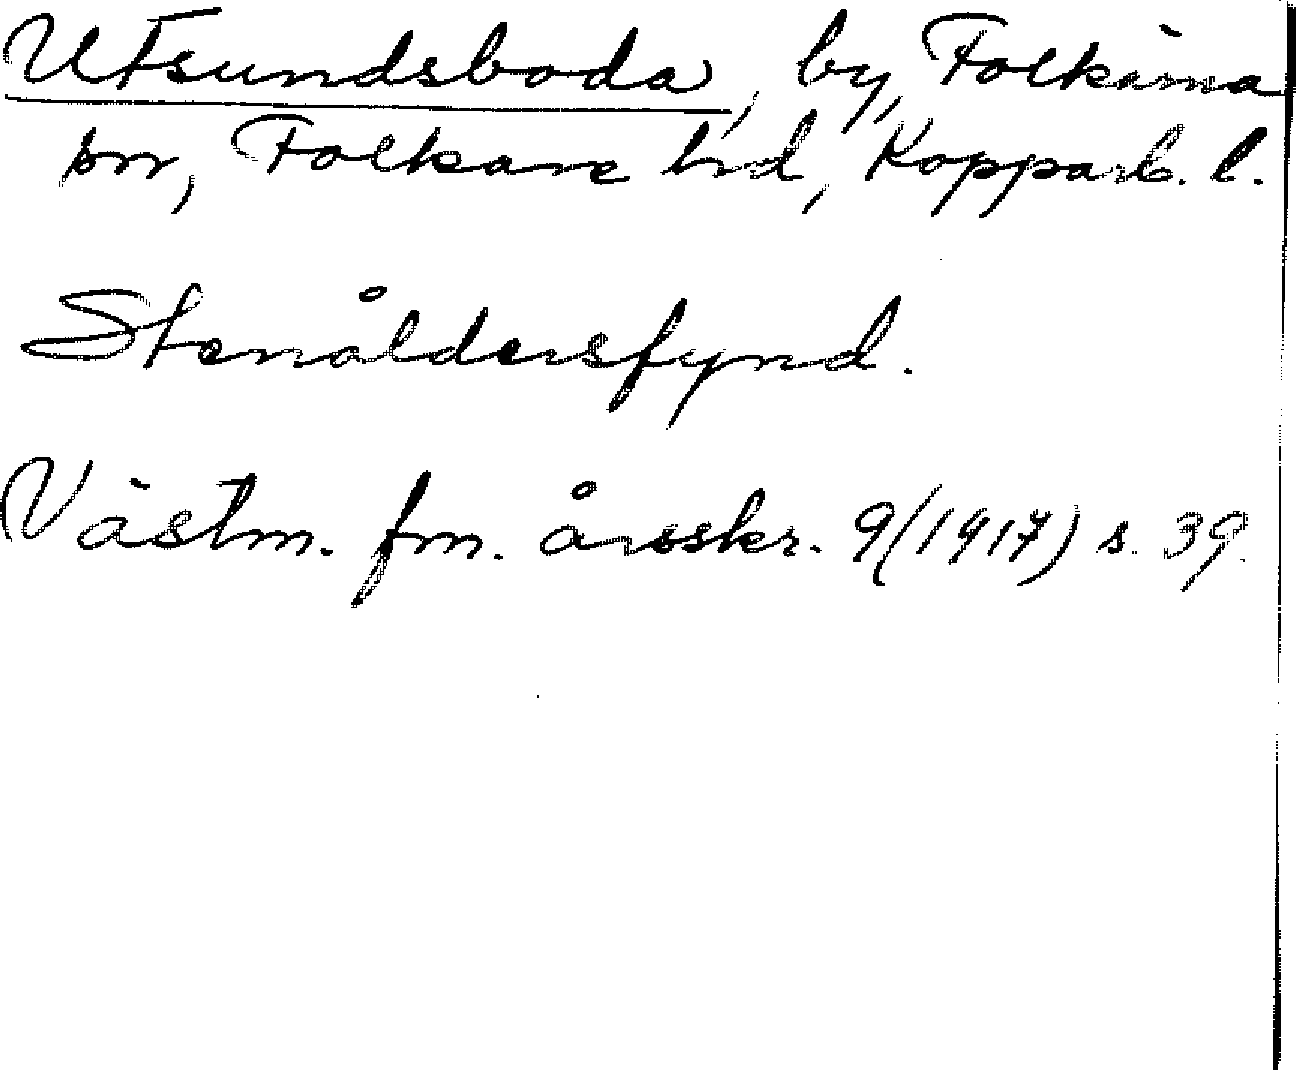 Utsundsboda, by, Folkärna
sn, Folkare hd, Kopparb. l.
Stenåldersfynd.
Västm. fm. årsskr. 9(1917) s. 39.